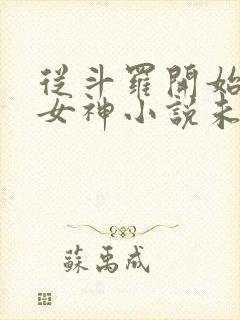 從斗羅開始
女神小說未
蘇禹成